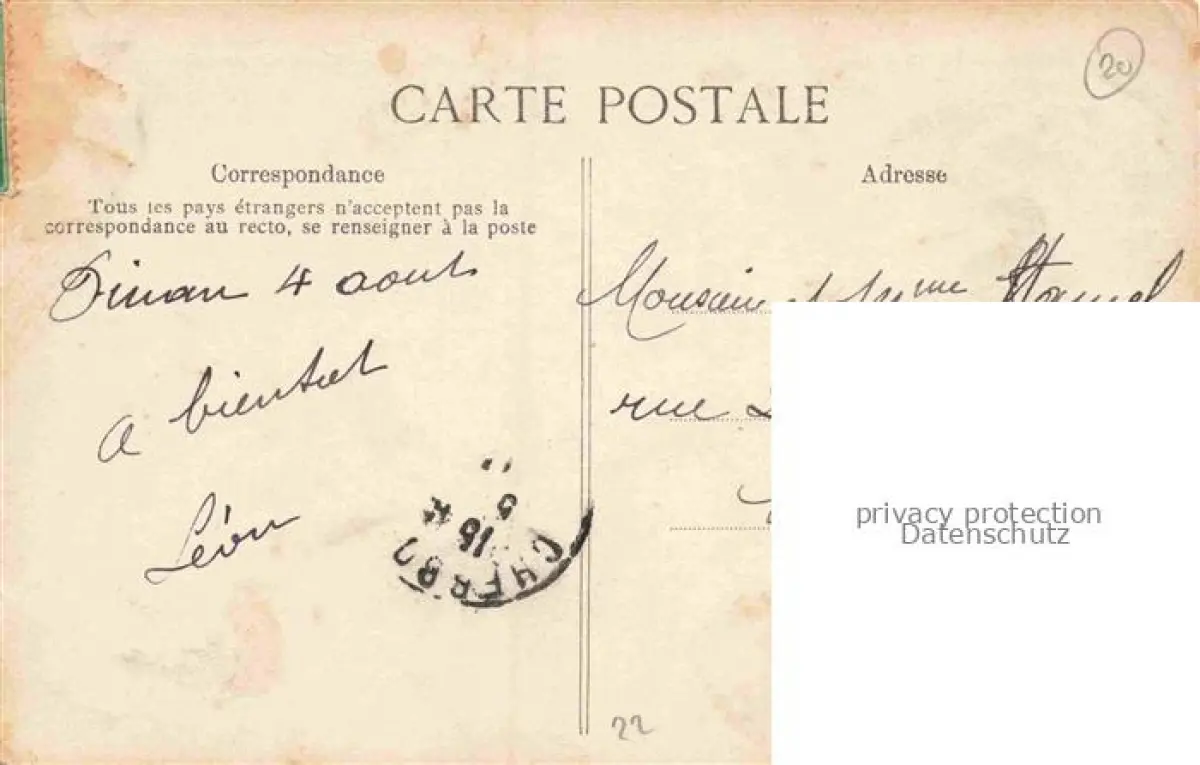 20
CARTE POSTALE
Correspondance
Adresse
Tous les pays étrangers n'acceptent pas la
correspondance au recto, se renseigner à la poste
Dinan 4 aout
a bientot
Léon
CHERBO
15
5
Monsieur et Mme
rue
22
privacy protection
Datenschutz